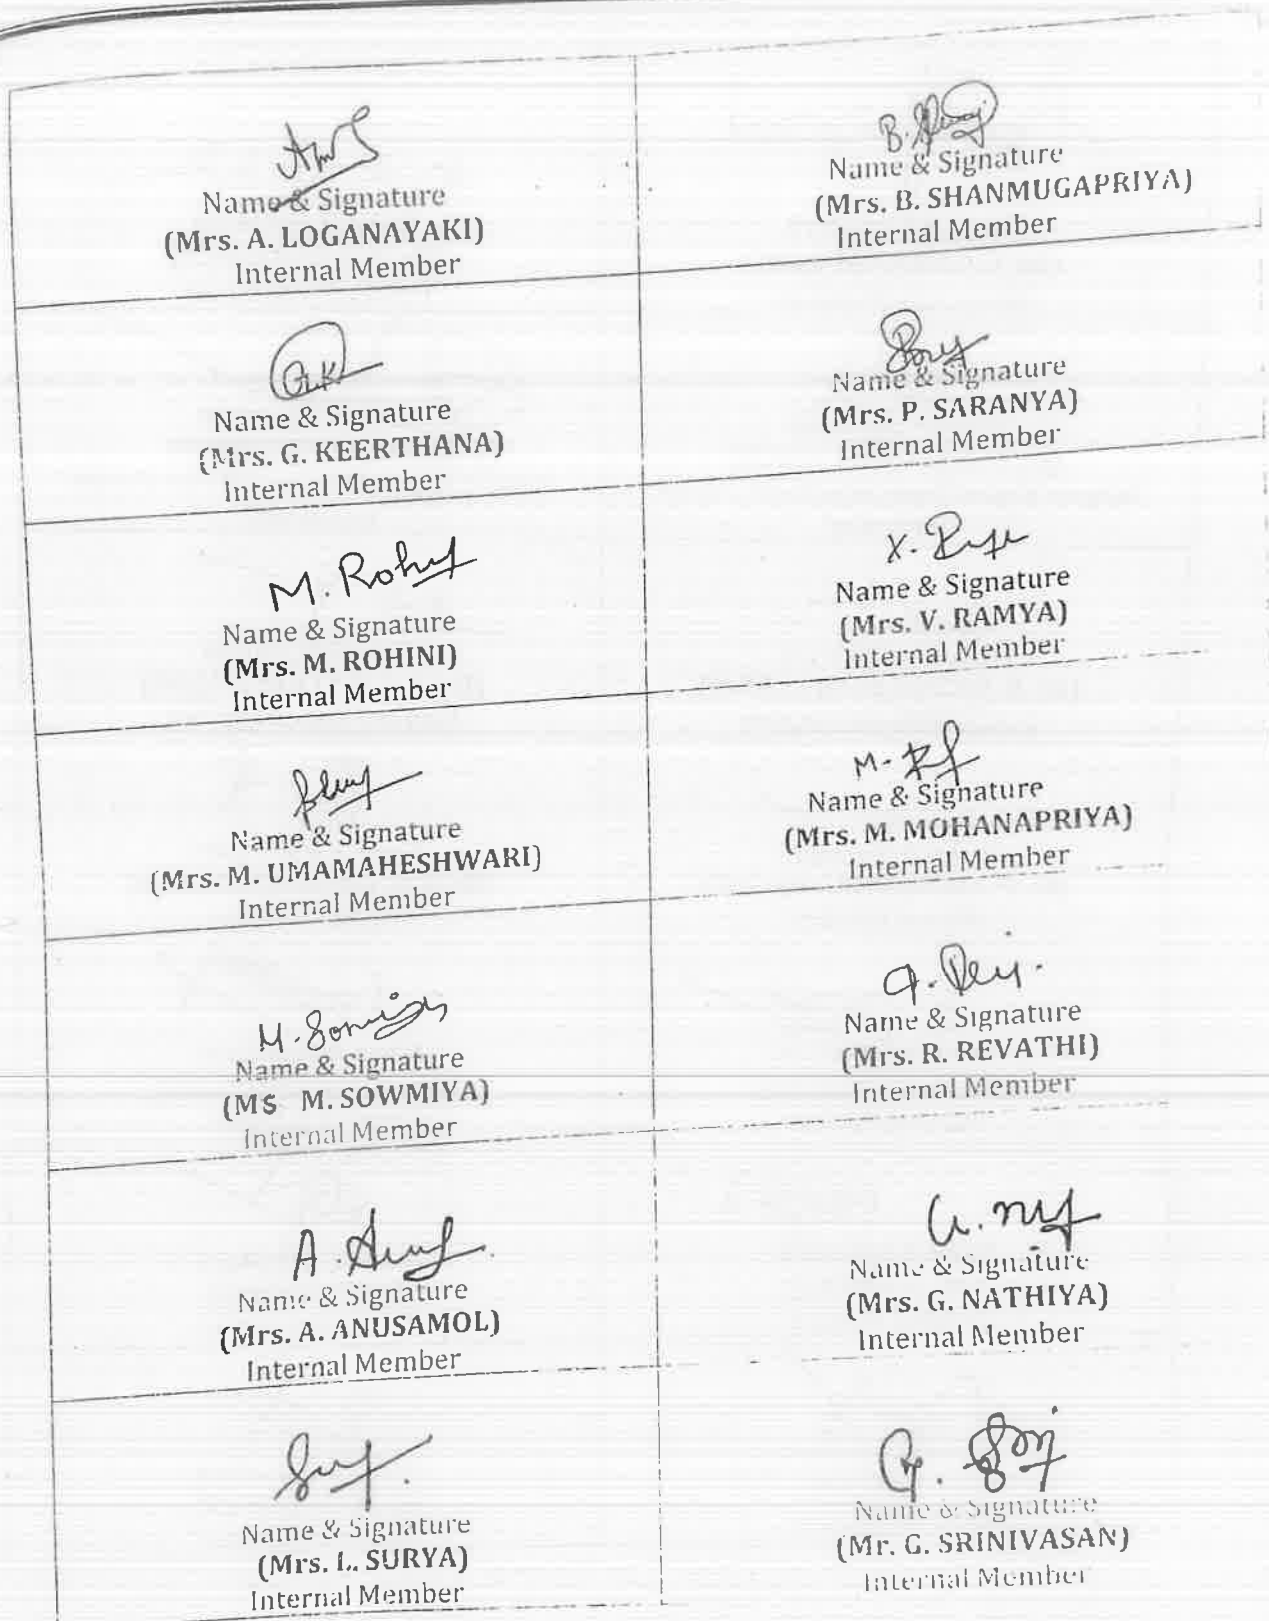 Name & Signature
(Mrs. A. LOGANAYAKI)
Internal Member
B.
Name & Signature
(Mrs. B. SHANMUGAPRIYA)
Internal Member
G.K
Name & Signature
(Mrs. G. KEERTHANA)
Internal Member
Name & Signature
(Mrs. P. SARANYA)
Internal Member
M. Rohini
Name & Signature
(Mrs. M. ROHINI)
Internal Member
Name & Signature
(Mrs. V. RAMYA)
Internal Member
Name & Signature
(Mrs. M. UMAMAHESHWARI)
Internal Member
M.
Name & Signature
(Mrs. M. MOHANAPRIYA)
Internal Member
M. Sowmiya
Name & Signature
(MS M. SOWMIYA)
Internal Member
Name & Signature
(Mrs. R. REVATHI)
Internal Member
A.
Name & Signature
(Mrs. A. ANUSAMOL)
Internal Member
G.
Name & Signature
(Mrs. G. NATHIYA)
Internal Member
Name & Signature
(Mrs. L. SURYA)
Internal Member
G.
Name & Signature
(Mr. G. SRINIVASAN)
Internal Member